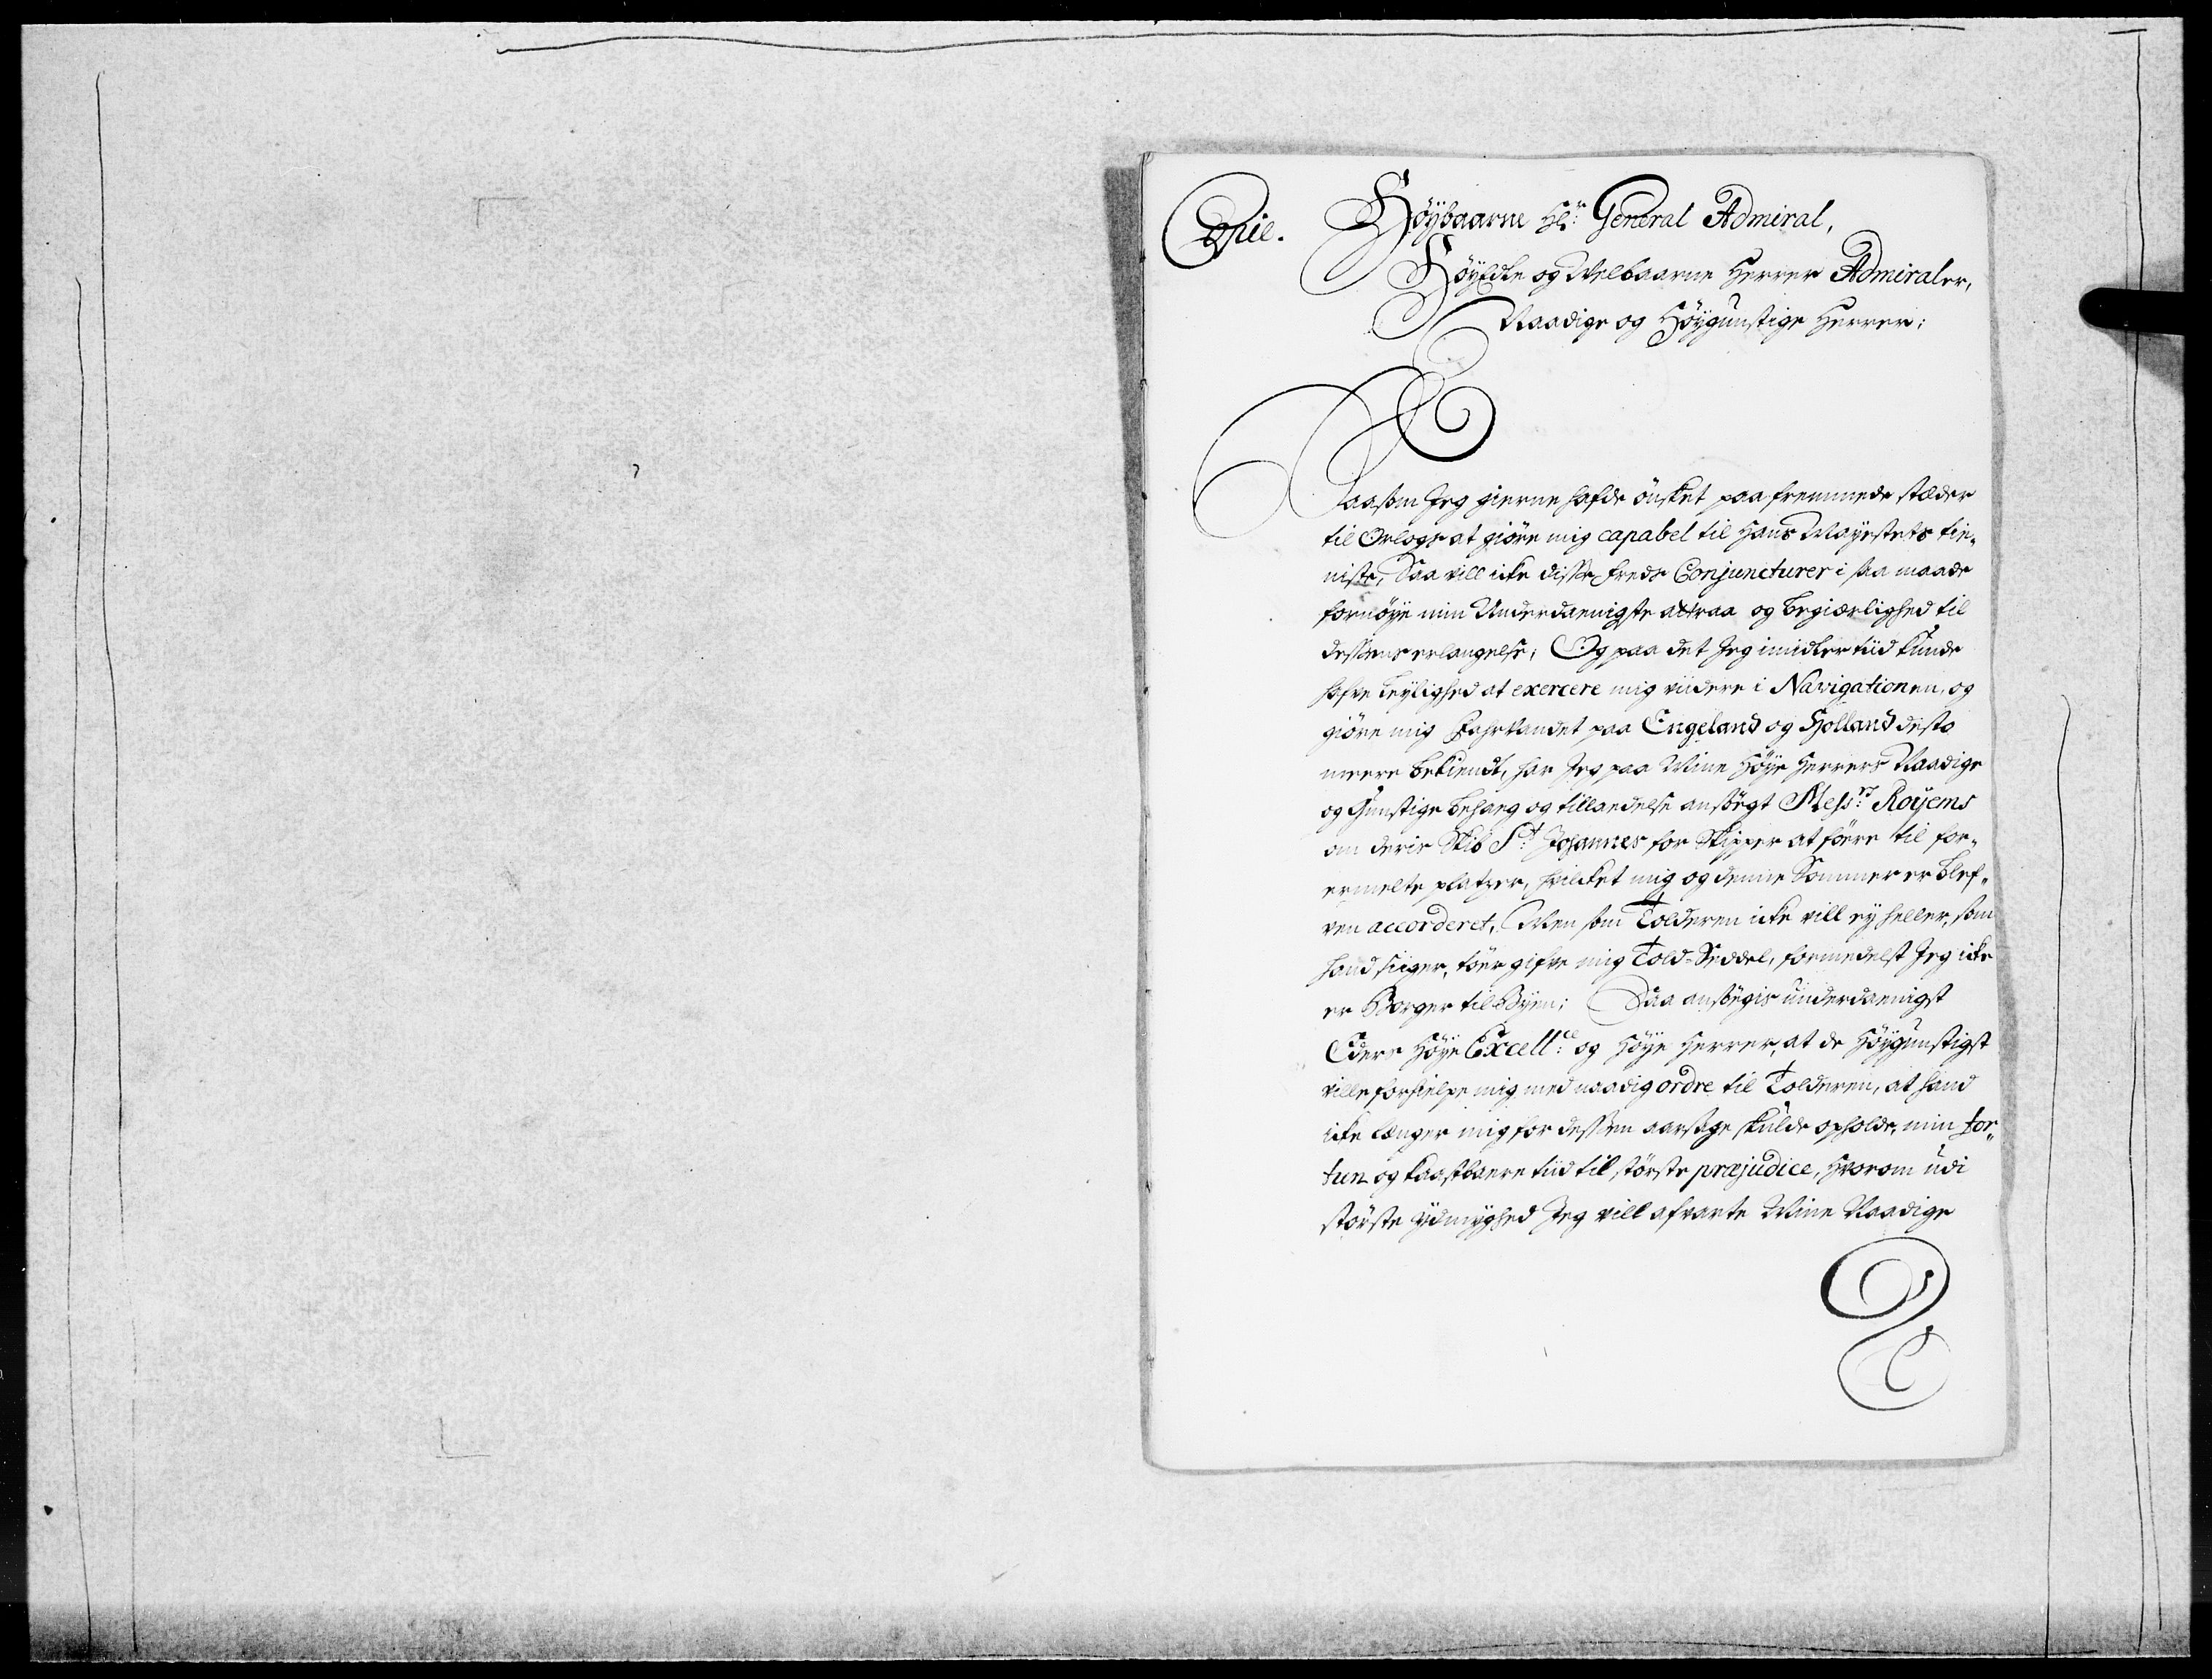 Copie.
Høybaarne Hr: General Admiral,
HøyEdle og Velbaarne Herrer Admiraler,
Naadige og Høygunstige Herrer;
Saasom Jeg gierne hafde ønsket paa fremmede stæder
til Orlogs at giøre mig capabel til Hans Mayestets tie-
niste, Saa vill icke disse freds Conjuncturer i saa maade
fornøye min Underdannigste attraa og begiærlighed til
dessens erlangelse; Og paa det Jeg imidler tiid kunde
hafve leylighed at exercere mig viidere i Navigationen, og
giøre mig Fahrvandet paa Engeland og Holland desto
meere bekiendt, har Jeg paa Mine Høye Herrers Naadige
og Gunstige behag og tilladelse ansøgt Messrs: Royems
om deris Skib St: Johannes for Skipper at føre til for-
ermelte platzer, hvilcket mig og denne Sommer er blef-
ven accorderet, Men som Tolderen icke vill ey heller, som
hand siiger, tør gifve mig Told-Seddel, formedelst Jeg icke
er Borger til Byen; Saa ansøgis underdannigst
Eders Høye Excellce: og Høye Herrer, at de Høygunstigst
ville forhielpe mig med naadig ordre til Tolderen, at hand
icke længer mig for dessen aarsage skulde opholde, min for-
tun og kaastbaere tiid til største præjudice, Hvorom udi
største ydmyghed Jeg vill afvarte Mine Naadige